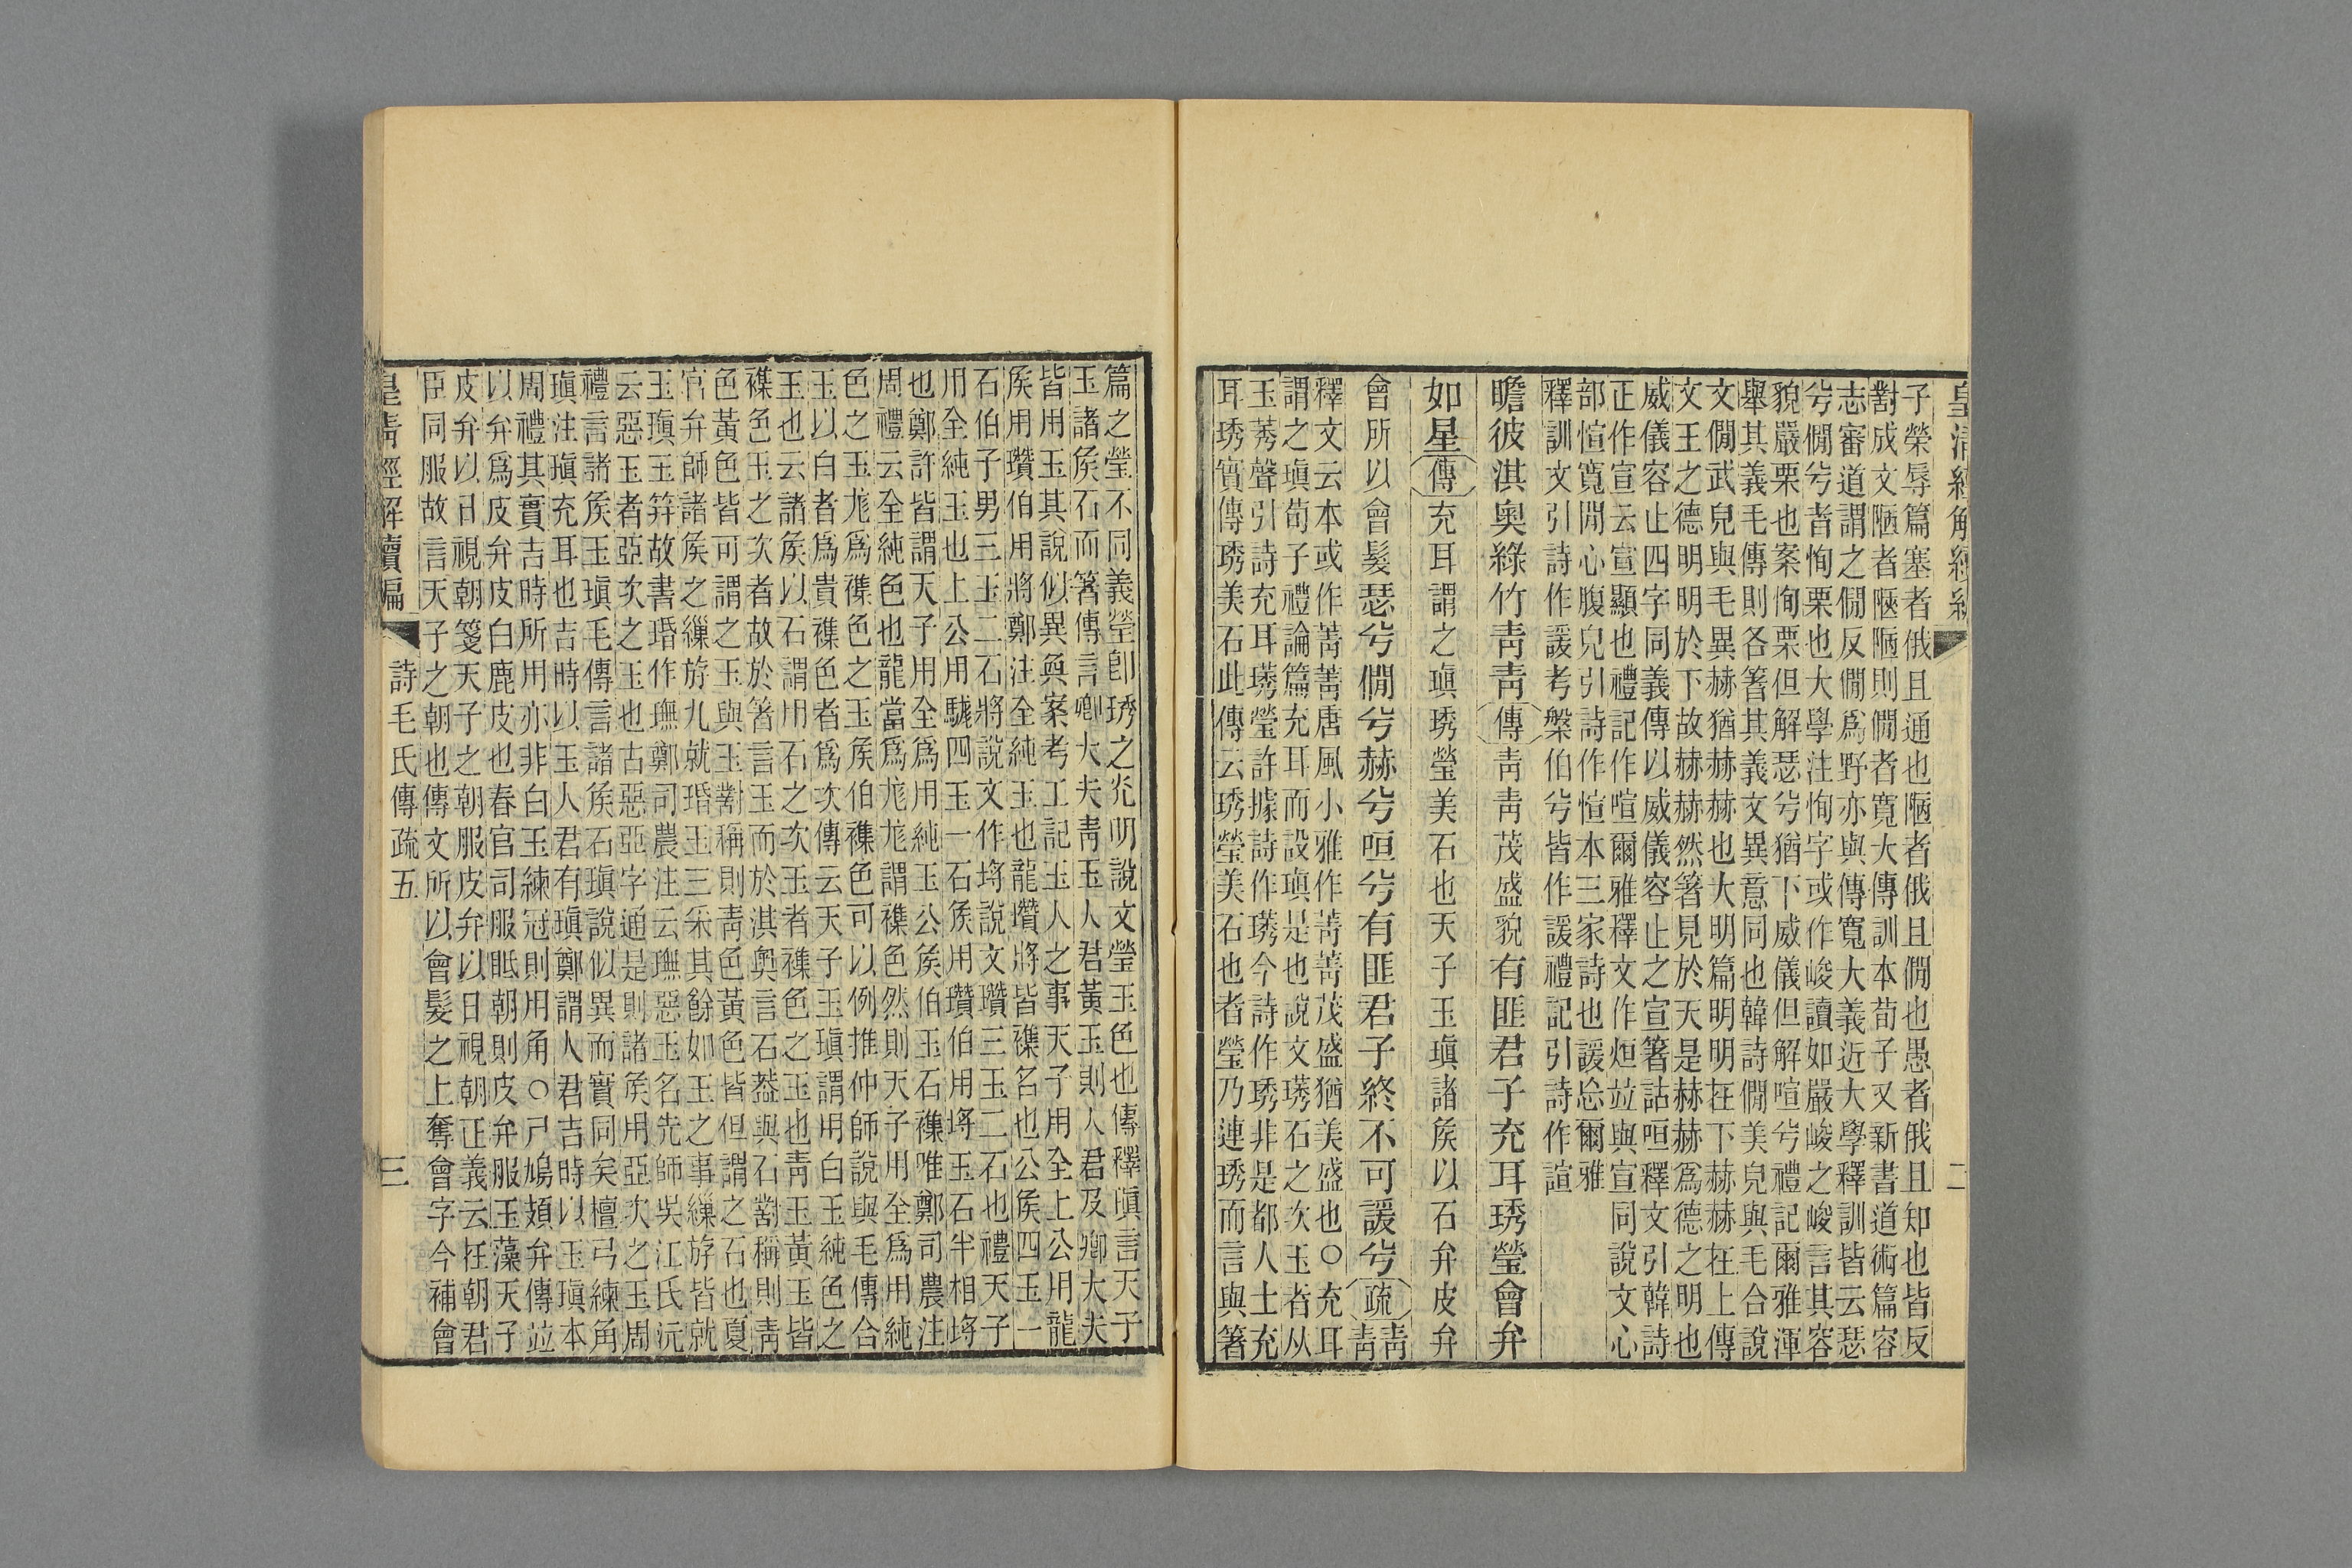 皇清經解續編
二
子榮辱篇塞者俄且通也陋者俄且僩也愚者俄且知也皆反
對成文陋者陿陋則僩者寬大傳訓本荀子又新書道術篇容
志審道謂之僩反僩爲野亦與傳寬大義近大學釋訓皆云瑟
兮僩兮者恂栗也大學注恂字或作峻讀如嚴峻之峻言其容
貌嚴栗也案恂栗但解瑟兮猶下威儀但解喧兮禮記爾雅渾
舉其義毛傳則各箸其義文異意同也韓詩僩美皃與毛合說
文僩武皃與毛異赫猶赫赫也大明篇明明在下赫赫在上傳
文王之德明明於下故赫赫然箸見於天是赫赫爲德之明也
威儀容止四字同義傳以威儀容止之宣箸詁咺釋文引韓詩
正作宣云宣顯也禮記作喧爾雅釋文作烜竝與宣同說文心
部愃寬閒心腹皃引詩作愃本三家詩也諼忘爾雅
釋訓文引詩作諼考槃伯兮皆作諼禮記引詩作諠
瞻彼淇奧綠竹靑靑傳靑靑茂盛貌有匪君子充耳琇瑩會弁
如星傳充耳謂之瑱琇瑩美石也天子玉瑱諸矦以石弁皮弁
會所以會髮瑟兮僩兮赫兮咺兮有匪君子終不可諼兮疏靑靑
釋文云本或作菁菁唐風小雅作菁菁茂盛猶美盛也○充耳
謂之瑱荀子禮論篇充耳而設瑱是也說文琇石之次玉者从
玉莠聲引詩充耳琇瑩許據詩作琇今詩作琇非是都人士充
耳琇實傳琇美石此傳云琇瑩美石也者瑩乃連琇而言與箸
篇之瑩不同義瑩卽琇之光明說文瑩玉色也傳釋瑱言天子
玉諸矦石而箸傳言卿大夫靑玉人君黃玉則人君及卿大夫
皆用玉其說似異奐案考工記玉人之事天子用全上公用龍
矦用瓚伯用將鄭注全純玉也龍瓚將皆襍名也公矦四玉一
石伯子男三玉二石將說文作埒說文瓚三玉二石也禮天子
用全純玉也上公用駹四玉一石矦用瓚伯用埒玉石半相埒
也鄭許皆謂天子用全爲用純玉公矦伯玉石襍唯鄭司農注
周禮云全純色也龍當爲尨尨謂襍色然則天子用全爲用純
色之玉尨爲襍色之玉矦伯襍色可以例推仲師說與毛傳合
玉以白者爲貴襍色者爲次傳云天子玉瑱謂用白玉純色之
玉也云諸矦以石謂用石之次玉者襍色之玉也靑玉黃玉皆
襍色玉之次者故於箸言玉而於淇奧言石葢與石對稱則靑
色黃色皆可謂之玉與玉對稱則靑色黃色皆但謂之石也夏
官弁師諸矦之繅斿九就瑉玉三采其餘如王之事繅斿皆就
玉瑱玉笄故書瑉作璑鄭司農注云璑惡玉名先師吳江氏沅
云惡玉者亞次之玉也古惡亞字通是則諸矦用亞次之玉周
禮言諸矦玉瑱毛傳言諸矦石瑱說似異而實同矣檀弓練角
瑱注瑱充耳也吉時以玉人君有瑱鄭謂人君吉時以玉瑱本
周禮其實吉時所用亦非白玉練冠則用角○尸鳩頍弁傳竝
以弁爲皮弁皮白鹿皮也春官司服眡朝則皮弁服玉藻天子
皮弁以日視朝箋天子之朝服皮弁以日視朝正義云在朝君
臣同服故言天子之朝也傳文所以會髮之上奪會字今補會
皇淸經解續編
詩毛氏傳疏五
三